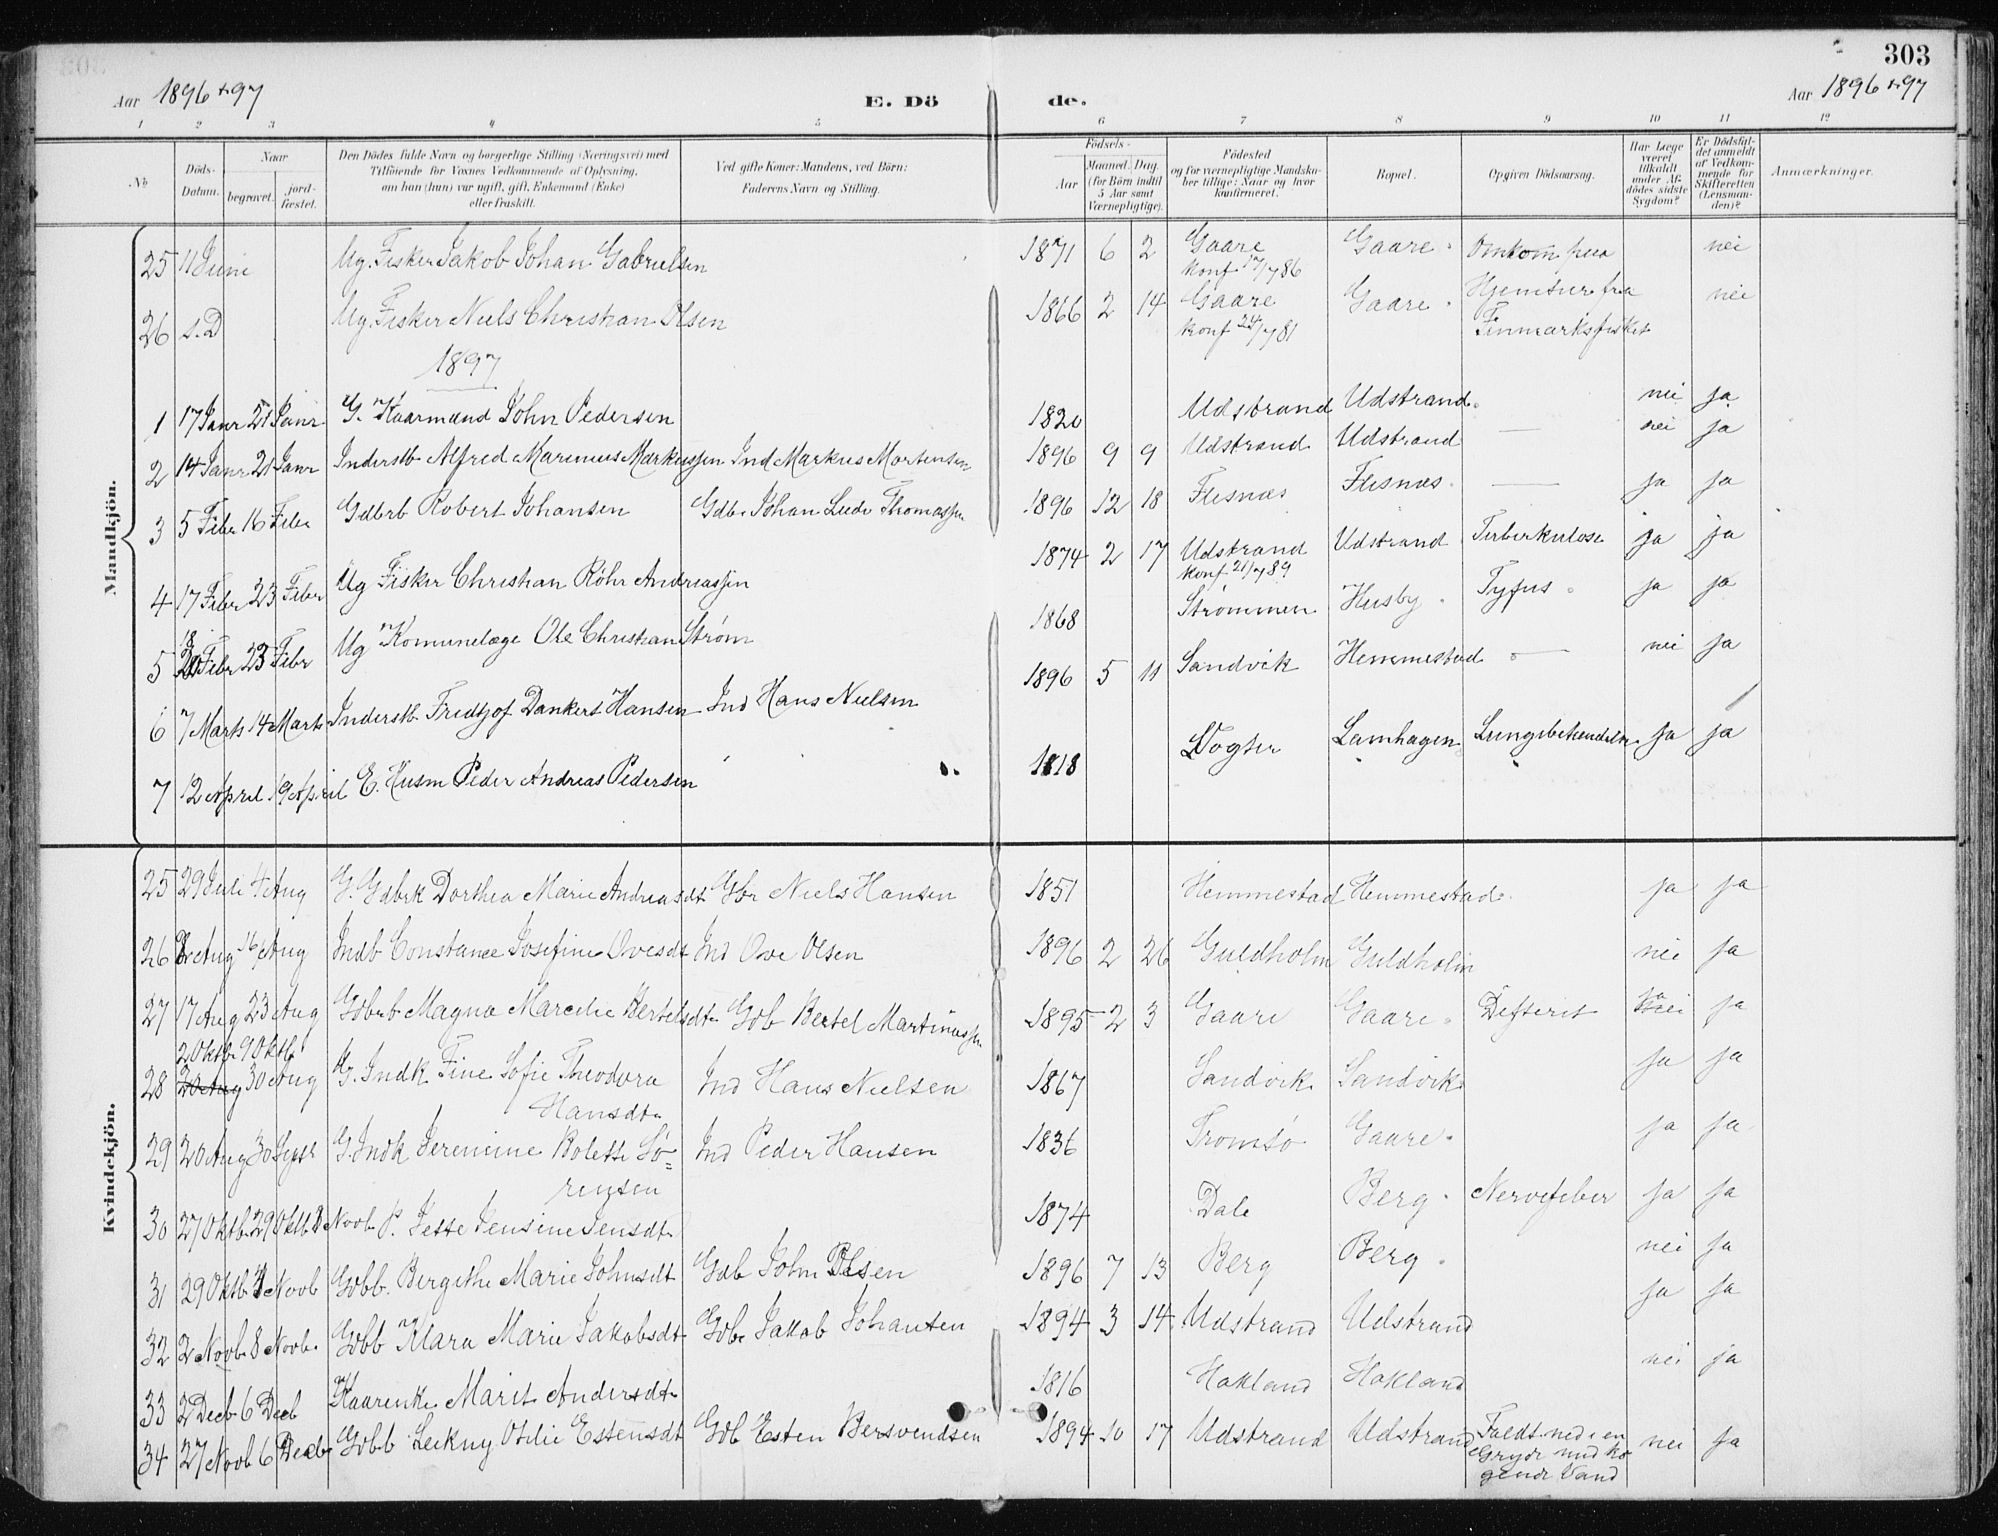 303
Aar 1896 & 97
E. Dö de.
Aar 1896 & 97
1 2 3 4 5 6 7 8 9 10 11 12
No
Döds-Datum.
Naar
begravet.
jordfæstet.
Den Dödes fulde Navn og borgerlige Stilling (Næringsvei) med
Tilföiende for Voxnes Vedkommende af Oplysning,
om han (hun) var ugift, gift, Enkemand (Enke)
eller fraskilt.
Ved gifte Koner: Mandens, ved Börn:
Faderens Navn og Stilling.
Födsels-
Aar
Maaned. Dag.
(for Börn indtil 5 Aar samt Værnepligtige).
Födested
og for værnepligtige Mandskaber tillige: Naar og hvor konfirmeret.
Bopæl.
Opgiven Dödsaarsag.
Har Læge været tilkaldt under Afdödes sidste Sygdom?
Er Dödsfaldet anmeldt af Vedkommende for Skifteretten (Lensmanden)?
Anmærkninger.
Mandkjön.
25 11 Juni Ug. Fisker Jakob Johan Gabrielsen 1871 6 2 Gaare konf 17/7 86 Gaare Omkom paa nei
26 s. D Ug. Fisker Niels Christian Olsen 1866 2 14 Gaare konf 24/7 81 Gaare Hjemtur fra Finmarksfisket nei
1897
1 17 Janr 21 Janr G. Kaarmand John Pedersen 1820 Udstrand Udstrand nei ja
2 14 Janr 21 Janr Inderstb Alfred Marinius Markussen Ind Markus Mortensen 1896 9 9 Udstrand Udstrand — nei ja
3 5 Febr 16 Febr Gdbrb Robert Johansen Gdb. Johan Ludv Thomassen 1896 12 18 Flesnæs Flesnæs — ja ja
4 17 Febr 23 Febr Ug Fisker Christian Røhr Andreassen 1874 2 17 Udstrand konf 21/7 89 Udstrand Tuberkulose ja ja
5 18 Febr 23 Febr Ug Komunelæge Ole Christian Strøm 1868 Strømmen Husby Tyfus ja ja
6 7 Marts 14 Marts Inderstb. Fredtjof Dankert Hansen Ind Hans Nielsen 1896 5 11 Sandvik Hemmestad — nei ja
7 12 April 19 April E. Husm Peder Andreas Pedersen 1818 Vogter Lamhagen Lungebetændelse ja ja
Kvindekjön.
25 29 Juli 4 Aug G. Gdbrk Dorthea Marie Andreasdt Gbr Niels Hansen 1851 Hemmestad Hemmestad ja ja
26 Aug 16 Aug Indb Constance Josefine Ovesdt Ind Ove Olsen 1896 2 26 Guldholm Guldholm nei ja
27 17 Aug 23 Aug Gdbrb Magna Marcelie Bertelsdt Gdb Bertel Martinussen 1895 2 3 Gaare Gaare Defterit ja
2 Oktb. 9 Oktb.
28 20 Aug 30 Aug G. Indk Fine Sofie Theodora Hansdt. Ind Hans Nielsen 1867 Sandvik Sandvik ja ja
29 20 Aug 30 Sept G. Indk Jeremine Bolette Sørensen Ind Peder Hansen 1836 Tromsø Gaare ja ja
30 27 Oktb. 29 Oktb. Novb. P. Jette Jensine Jensdt. 1874 Dale Berg Nervefeber ja ja
31 29 Oktb. Novb Gdbb. Bergithe Marie Johnsdt Gdb John Olsen 1896 7 13 Berg Berg nei ja
32 2 Novb. 8 Novb. Gdbb Klara Marie Jakobsdt Gdb. Jakob Johansen 1894 3 14 Udstrand Udstrand ja ja
33 2 Decb 6 Decb Kaarenke Marit Andersdt. 1816 Hokland Hokland nei ja
34 27 Novb 6 Decb. Gdbb Leikny Otilie Estensdt Gdb Esten Bersvendsen 1894 10 17 Udstrand Udstrand Faldt ned i en Gryde med kogende Vand nei ja